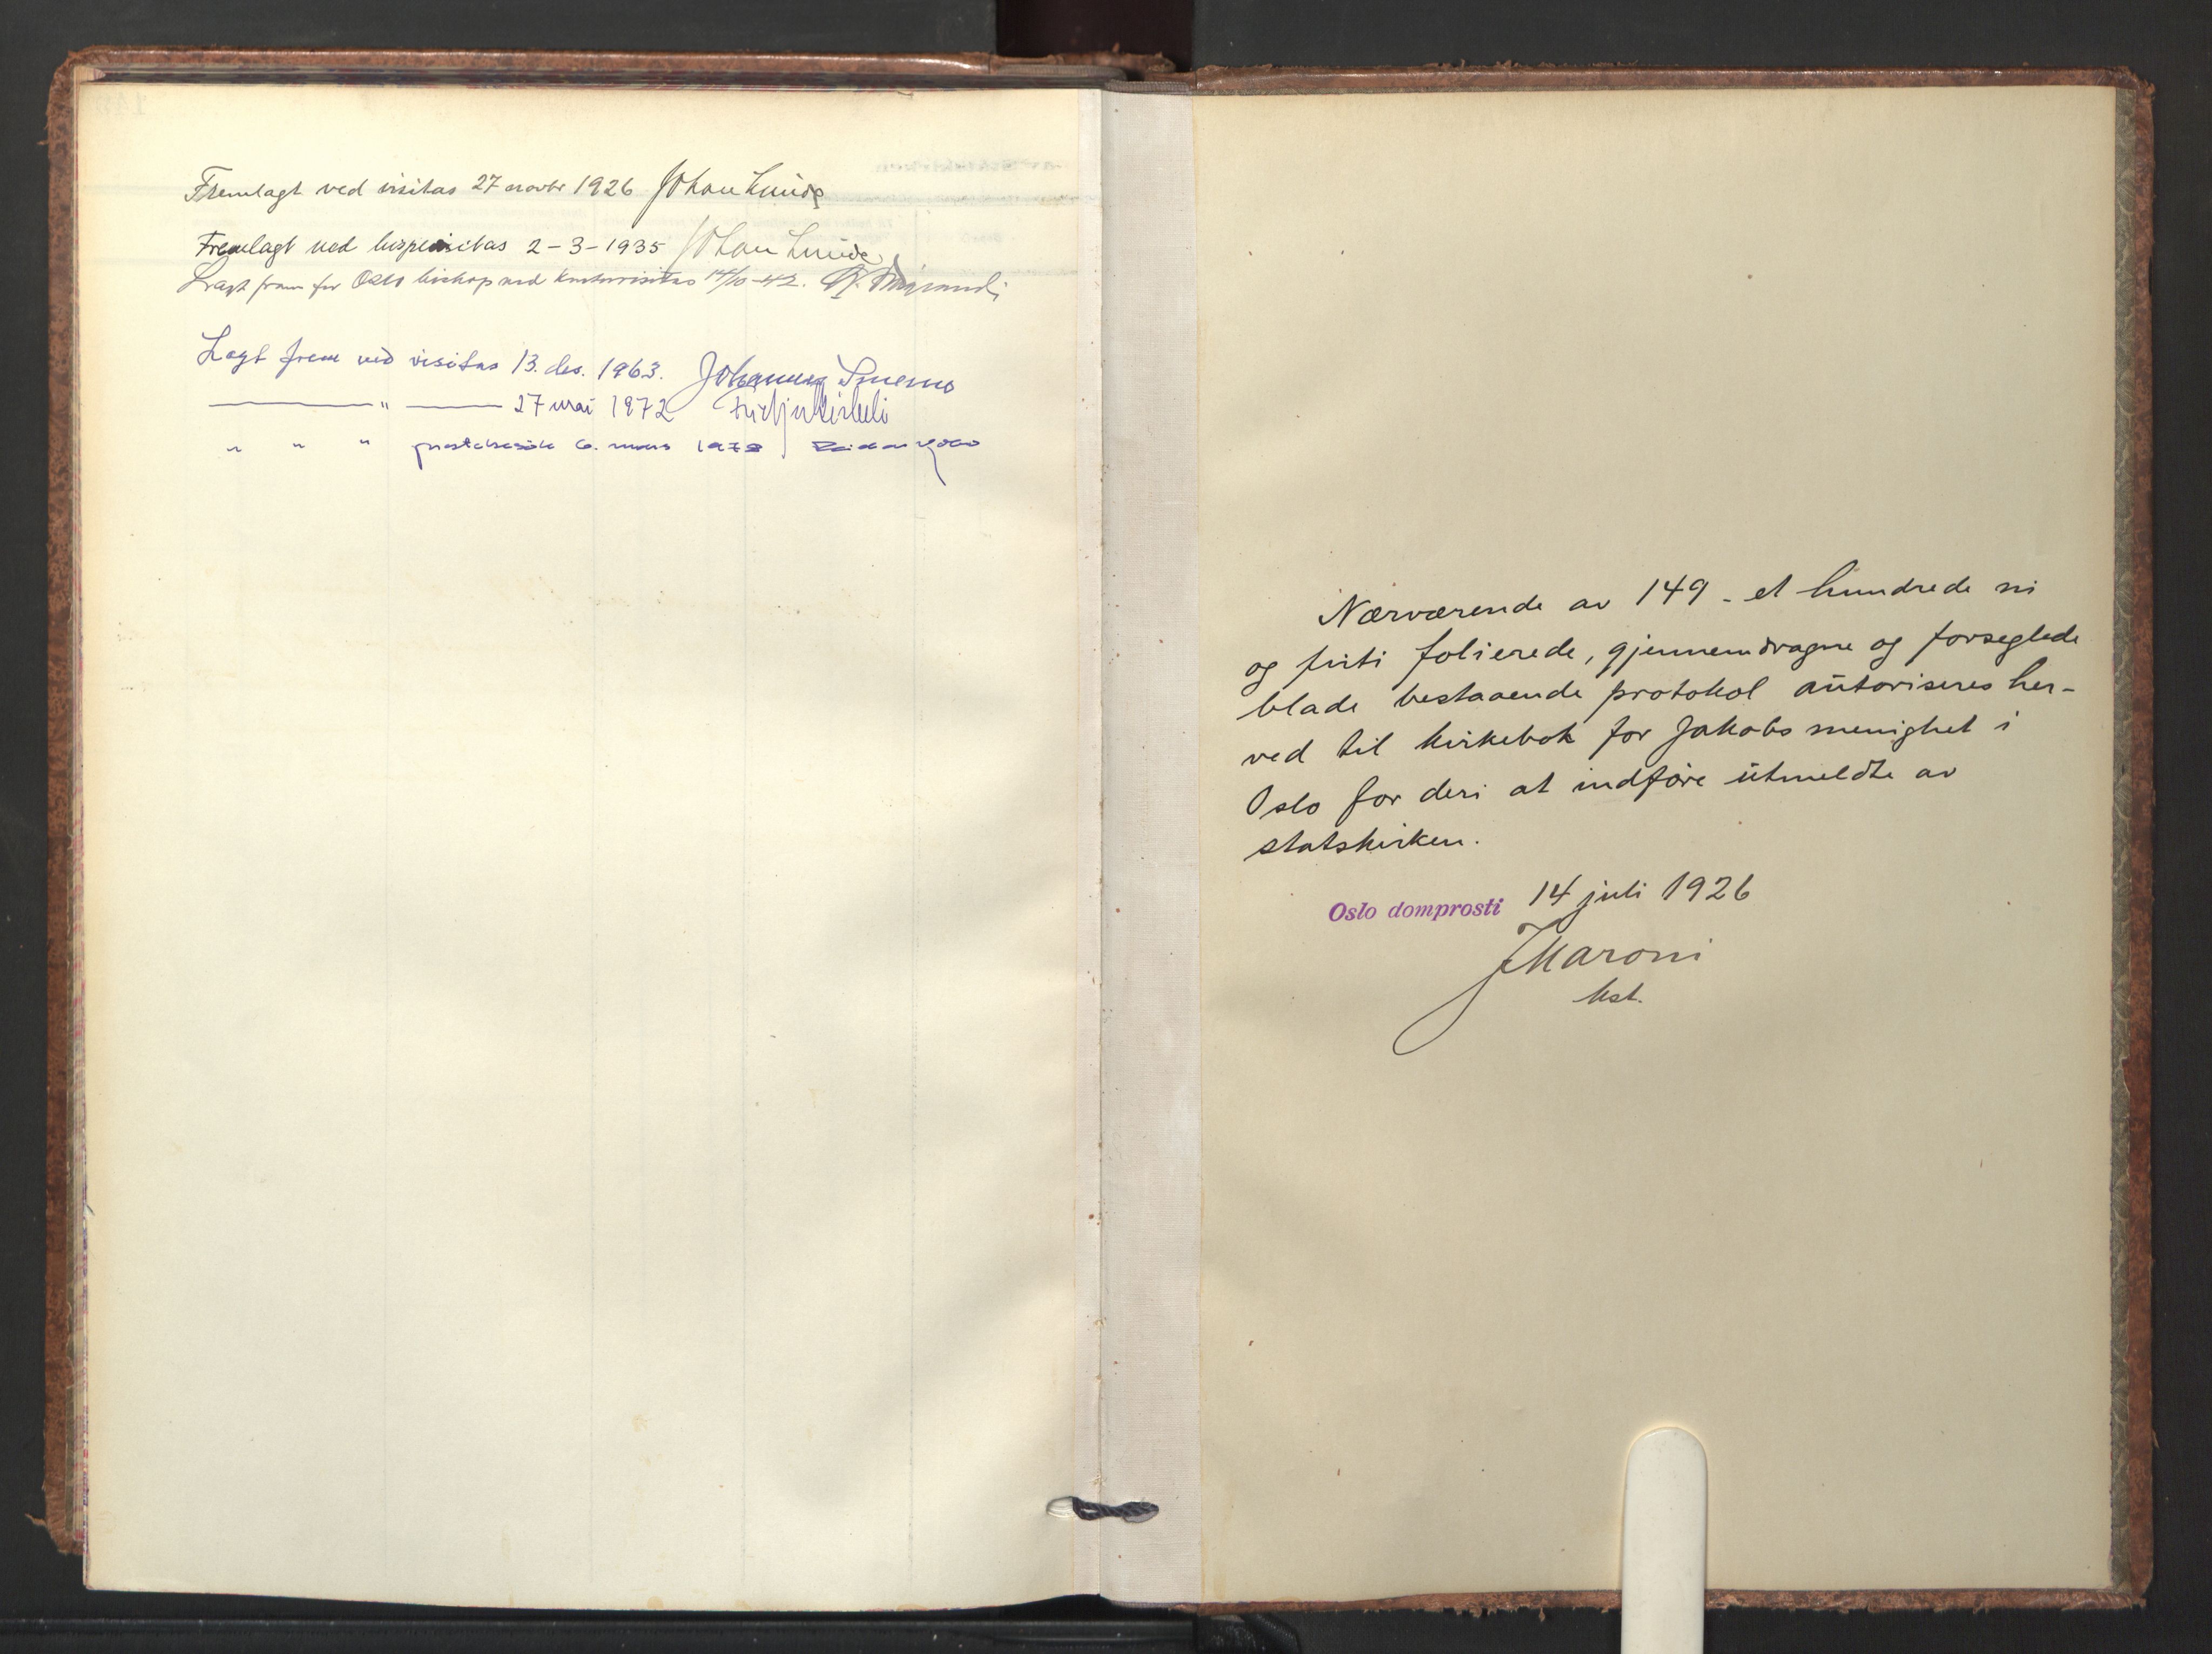 Fremlagt ved visitas 27 novbr 1926 Johan Lunde
Fremlagt ved bispevisitas 2-3-1935 Johan Lunde
Lagt fram for Oslo biskop ved kontorvisitas 14/10-42.
Lagt frem ved visitas 13. des. 1963. Johannes Smemo
— " — 27 mai 1972 Fridtjov Birkeli
" " " prostebesøk 6. mars 1978
Nærværende av 149 - et hundrede ni
og firti folierede, gjennemdragne og forseglede
blade bestaaende protokol autoriseres her-
ved til kirkebok for Jakobs menighet i
Oslo for deri at indføre utmeldte av
statskirken.
Oslo domprosti 14 juli 1926
J Maroni
kst.